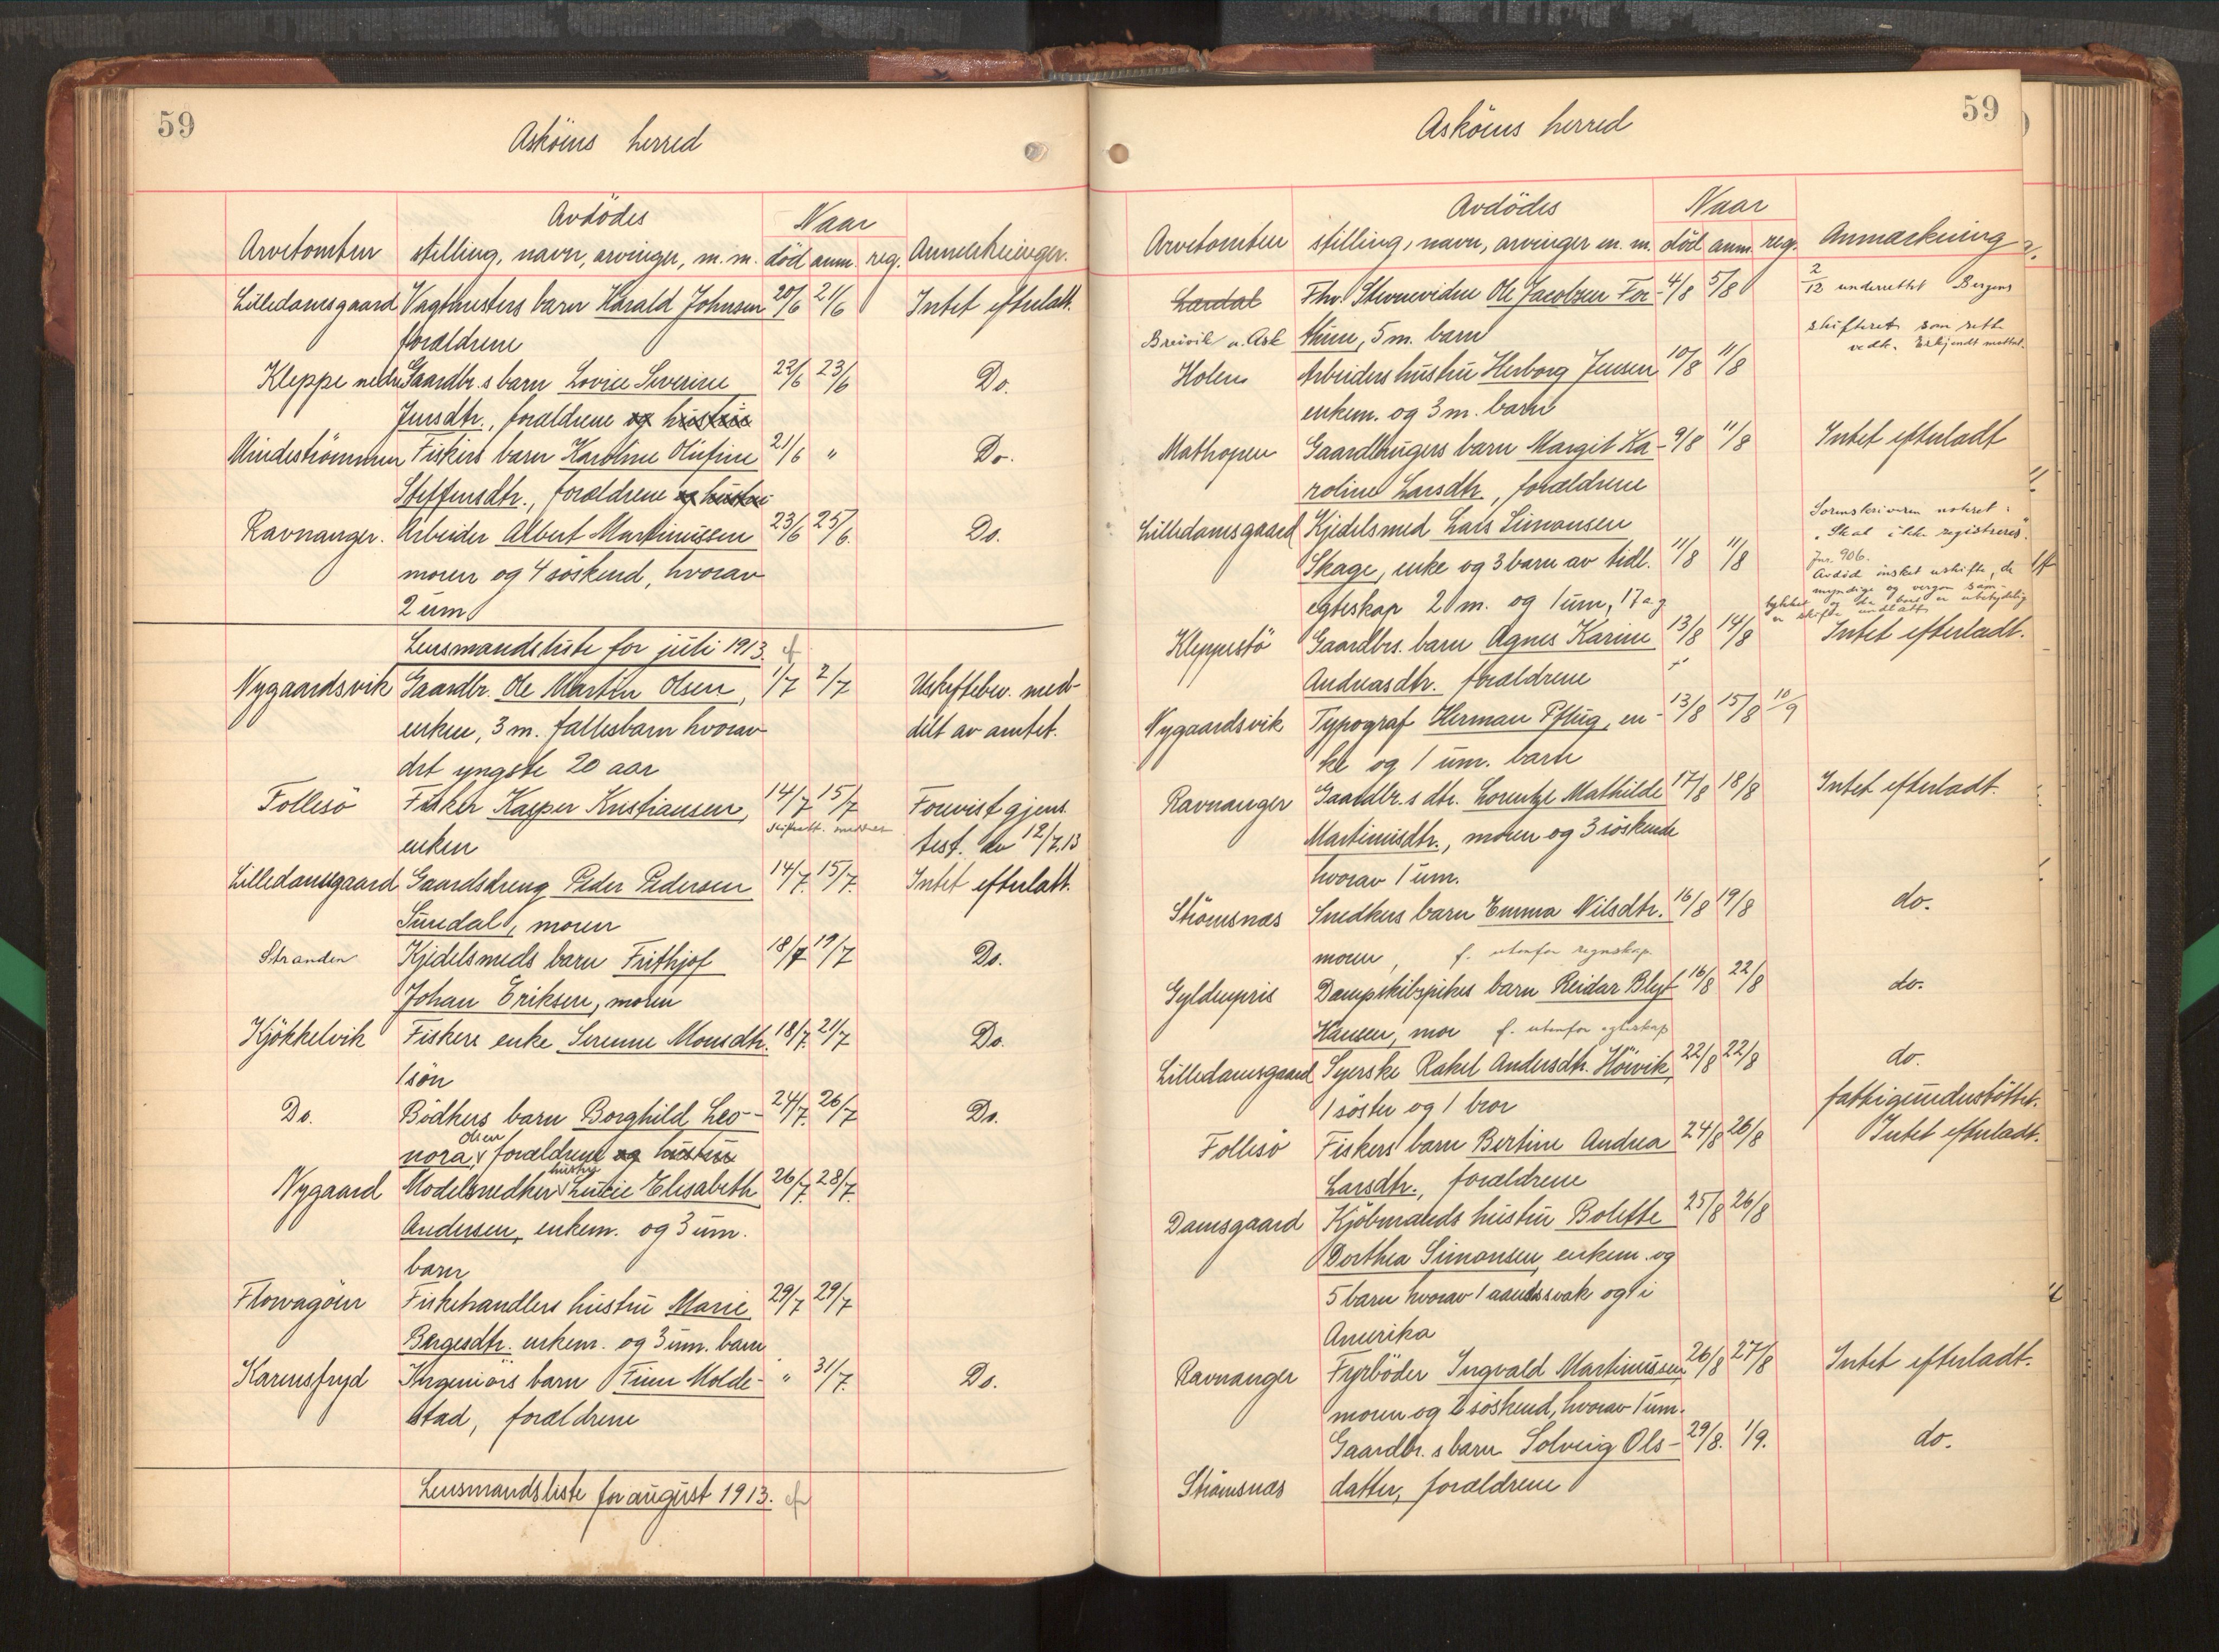 59
Askøens herred
Avdødes Naar
Arvetomten stilling, navn, arvinger, m. m. død anm. reg. Anmerkninger.
Lilledamsgaard Vagtmesters barn Harald Johnsen 20/6 21/6 Intet efterlatt.
forældrene
Kleppe nedre Gaardbr.s barn Lovice Severine 22/6 23/6 Do.
Jensdtr., forældrene og hustru
Mindeströmmen Fiskers barn Karoline Olufine 21/6 " Do.
Steffensdtr., forældrene og hustru
Ravnanger. Arbeider Albert Martinussen 23/6 25/6. Do.
moren og 4 söskend, hvorav
2 um
Lensmandsliste for juli 1913.
Nygaardsvik Gaardbr. Ole Martin Olsen, 1/7 2/7 Uskiftebev. med-
enken, 3 m. fællesbarn hvorav delt av amtet.
det yngste 20 aar
Follesö Fisker Kasper Kristiansen, 14/7 15/7 Forevist gjens.
enken test. av 12/7.13
Lilledamsgaard Gaardsdreng Peder Pedersen 14/7. 15/7. Intet efterlatt.
Suredal, moren
Stranden Kjedelsmeds barn Frithjof 18/7 19/7 Do.
Johan Eriksen, moren
Kjökkelvik Fiskers enke Serenne Monsdtr. 18/7. 21/7 Do.
1 sön
Do. Bödkers barn Borghild Leo- 24/7. 26/7 Do.
olsen
nora, forældrene og hustru
hustru
Nygaard Modelsnedker Lucie Elisabeth 26/7. 28/7.
Andersen, enkem. og 3 um.
barn
Florvagöen Fiskehandlers hustru Marie 29/7 29/7
Bergesdtr. enkem. og 3 um. barn
Karensfryd Ingeniörs barn Finn Molde- " 31/7. Do.
stad, forældrene
Lensmandsliste for august 1913.
59
Askøens herred
Avdødes Naar
Arvetomten stilling, navn, arvinger m. m. død anm. reg. Anmærkning
Laxdal Fhv. Stuevidne Ole Jacobsen For- 4/8 5/8 2/12 underrettet Bergens
Breivik u. Ask thun, 5 m. barn skifteret som rette
vedk. Erkjendt mottat.
Holen Arbeiders hustru Herborg Jensen 10/8 11/8
enkem. og 3 m. barn
Mathopen Gaardbrugers barn Margit Ka- 9/8 11/8 Intet efterladt
roline Larsdtr., forældrene
Lilledamsgaard Kjedelsmed Lars Simonsen Sorenskriveren noteret:
Skage, enke og 3 barn av tidl. 11/8 11/8 "Skal ikke registreres".
Jnr. 906.
egteskap 2 m. og 1 um, 17 a g. Avdöd önsket uskifte, de
myndige og vergen sam-
tykket og da boet er ubetydelig
er skifte undlatt
Kleppestö Gaardbrs. barn Agnes Karine 13/8 14/8 Intet efterladt.
Andreasdtr. forældrene
Nygaardsvik Typograf Herman Pflug, en- 13/8 15/8 10/9
ke og 1 um. barn
Ravnanger Gaardbr.s dtr. Lorentze Mathilde 17/8 18/8 Intet efterladt.
Martinusdtr., moren og 3 söskende
hvorav 1 um.
Strömsnæs Snedkers barn Emma Nilsdtr. 16/8 19/8 do.
moren, f. utenfor egteskap
Gyldenpris Dampskibspikes barn Reidar Blyt 16/8 22/8 do.
Hansen, mor f. utenfor egteskap
Lilledamsgaard Syerske Rakel Andersdtr. Höivik, 22/8 22/8 do.
1 söster og 1 bror fattigunderstöttet.
Follesö Fiskers barn Bertine Andrea 24/8 26/8 Intet efterladt.
Larsdtr., forældrene
Damsgaard Kjöbmands hustru Bolette 25/8 26/8
Dorthea Simonsen, enkem. og
5 barn hvorav 1 aandssvak og 1 i
Amerika
Ravnanger Fyrböder Ingvald Martinussen, 26/8 27/8 Intet efterladt.
moren og 2 söskend, hvorav 1 um.
Gaardbr.s barn Solveig Ols- 29/8. 1/9. do.
Strömsnæs datter, forældrene